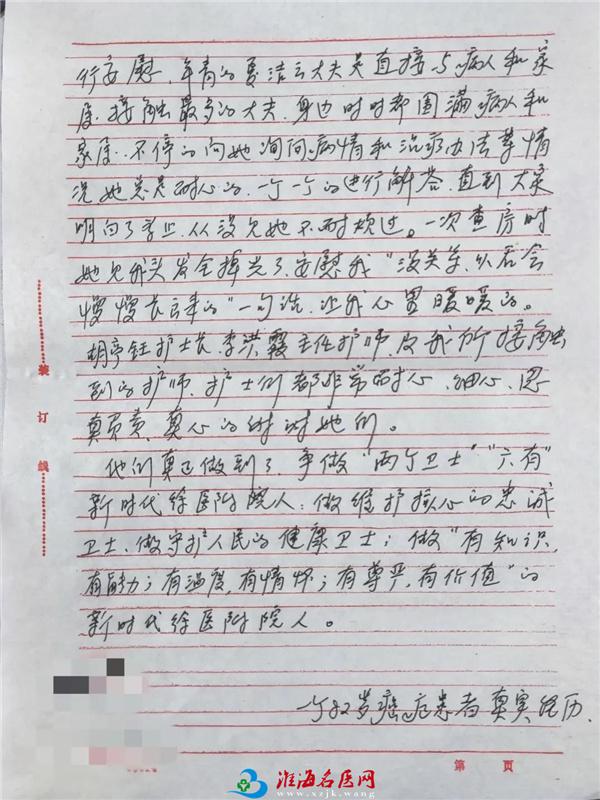 行安慰。年青的夏洁云大夫是直接与病人和家
属接触最多的大夫,身边时时都围满病人和
家属,不停的向她询问病情和治疗办法等情
况她总是耐心的,一个一个的进行解答,直到大家
明白了为止,从没见她不耐烦过。一次查房时
她见我头发全掉光了,安慰我“没关系,以后会
慢慢长出来的”一句话,让我心里暖暖的。
胡亭钰护士长,李洪霞主任护师,及我所接触
到的护师、护士们都非常的耐心、细心、认
真负责,真心的对待她们。
他们真正做到了,争做“两个卫士”“六有”
新时代徐医附院人:做维护核心的忠诚
卫士、做守护人民的健康卫士;做“有知识,
有能力;有温度,有情怀;有尊严,有价值”的
新时代徐医附院人。
一个82岁癌症患者真实经历.
装订线
第 页
淮海名医网
www.xzjk.wang